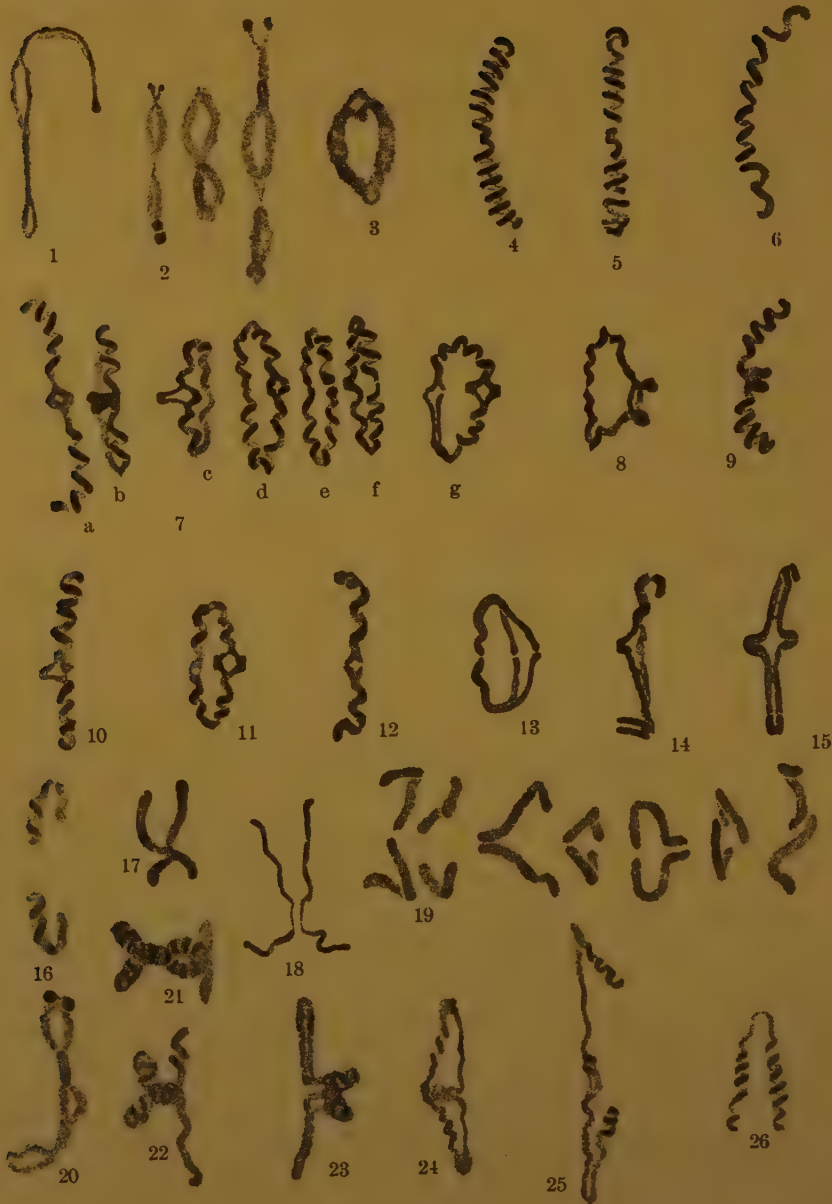 1
2
3
4
5
6
a
b
c
d
e
f
g
7
8
9
10
11
12
13
14
15
16
17
18
19
20
21
22
23
24
25
26